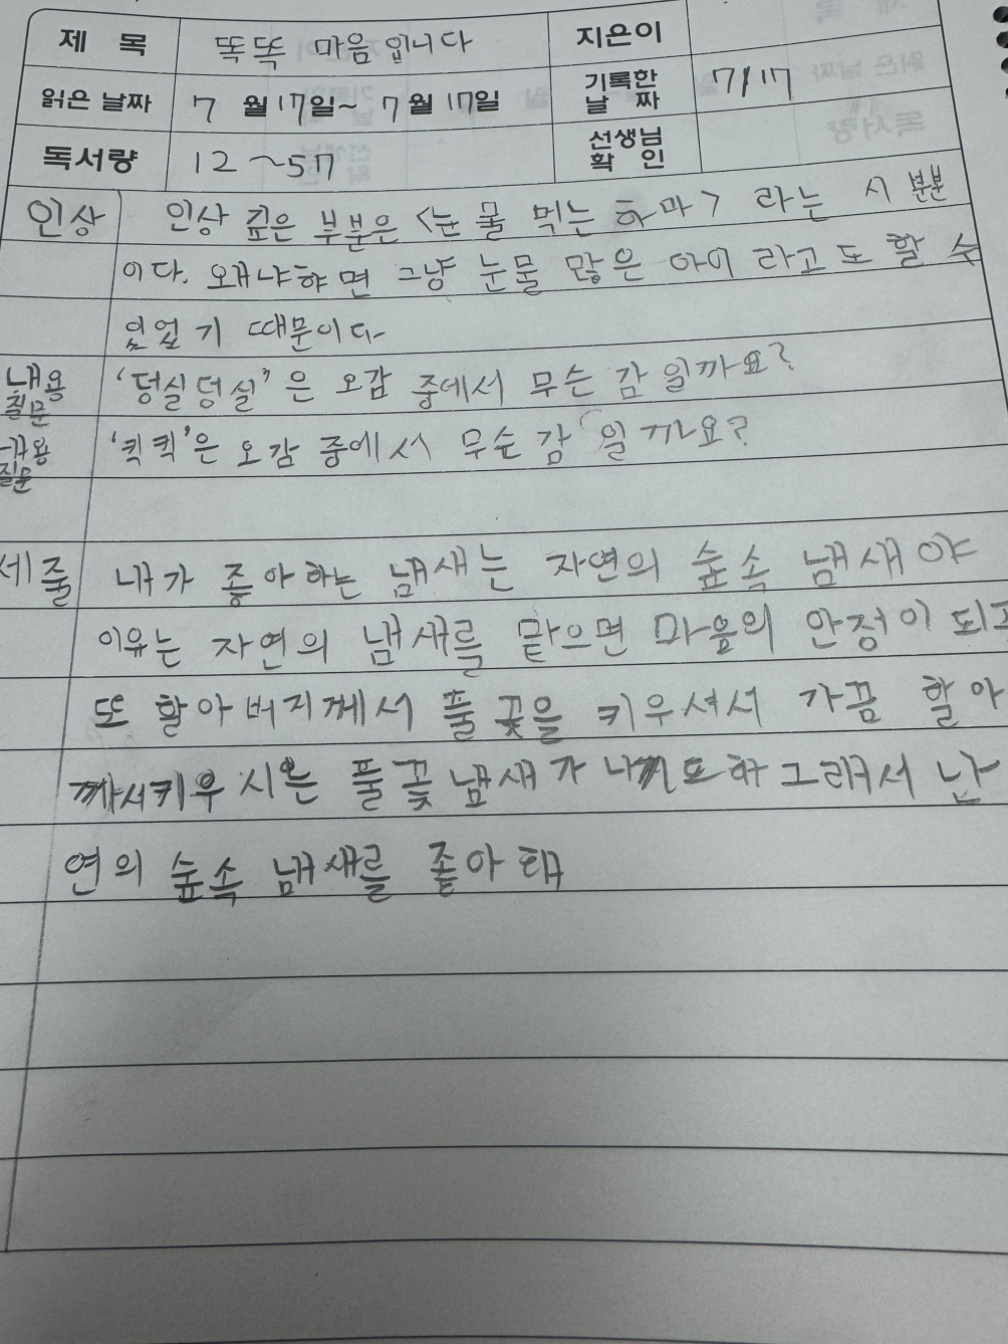 제 목 똑똑 마음입니다 지은이
읽은 날짜 7 월 17일~ 7월 17일 기록한 날 짜 7/17
독서량 12~57 선생님 확 인
인상 인상 깊은 부분은 <눈물 먹는 하마> 라는 시 부분
이다. 왜냐햐면 그냥 눈물 많은 아이 라고도 할 수
있었기 때문이다
내용 질문 '덩실덩실'은 오감 중에서 무슨 감일까요?
내용 질문 '킥킥'은 오감 중에서 무슨 감 일까요?
세줄 내가 좋아하는 냄새는 자연의 숲속 냄새야
이유는 자연의 냄새를 맡으면 마음의 안정이 되고
또 할아버지께서 풀 꽃을 키우셔서 가끔 할아
께서키우시은 풀꽃 냄새가 나기도 하 그래서 난
연의 숲속 냄새를 좋아해